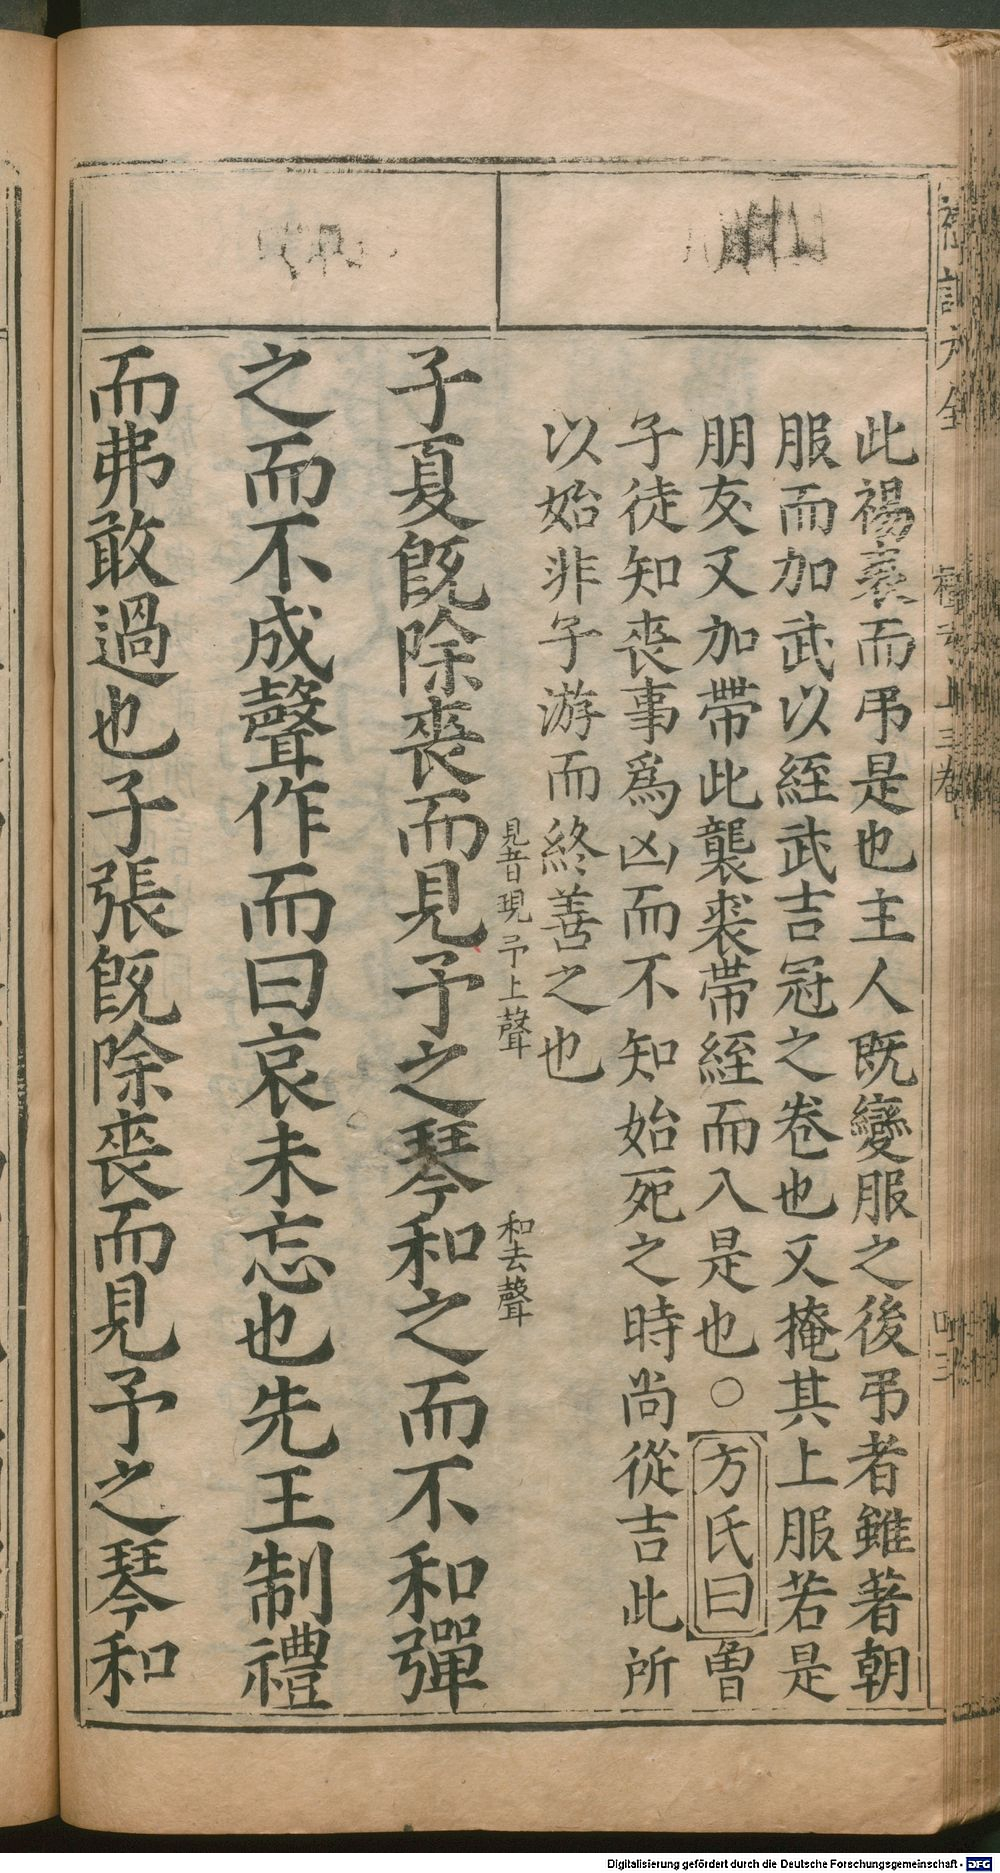 此裼裘而弔是也主人既變服之後弔者雖著朝
服而加武以絰武吉冠之卷也又掩其上服若是
朋友又加帶此襲裘帶絰而入是也○方氏曰曾
子徒知喪事爲凶而不知始死之時尚從吉此所
以始非子游而終善之也
見音現予上聲
和去聲
子夏旣除喪而見予之琴和之而不和彈
之而不成聲作而曰哀未忘也先王制禮
而弗敢過也子張旣除喪而見予之琴和
Digitalisierung gefördert durch die Deutsche Forschungsgemeinschaft - DFG